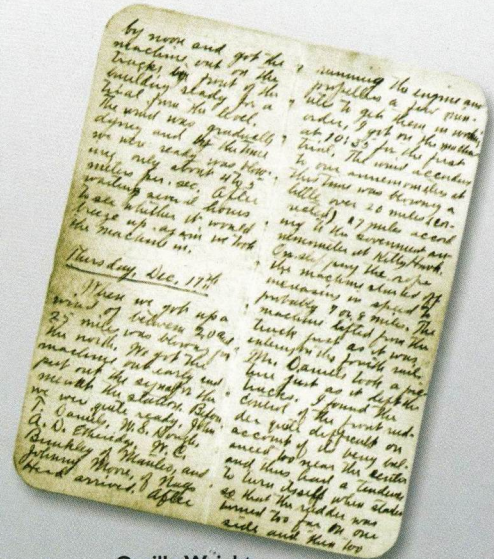 by noon and got the
machine out on the
tracks in front of the
building ready for a
trial from the level.
The wind was gradually
dying and by the time
we were ready was blow-
ing only about 4 to 5
meters per sec. After
waiting several hours
to see whether it would
breeze up again we took
the machine in.
Thursday, Dec. 17th
When we got up a
wind of between 20 and
25 miles was blowing from
the north. We got the
machine out early and
put out the signal for the
men at the station. Before
we were quite ready, John
T. Daniels, W. S. Dough,
A. D. Etheridge, W. C.
Brinkley of Manteo, and
Johnny Moore, of Nags
Head arrived. After
running the engine and
propellers a few min-
utes to get them in working
order, I got on the machine
at 10:35 for the first
trial. The wind according
to our anemometers at
this time was blowing a
little over 20 miles (cor-
rected) 27 miles accord
ing to the Government ane-
mometer at Kitty Hawk.
On slipping the rope
the machine started off
increasing in speed to
probably 7 or 8 miles. The
machine lifted from the
truck just as it was
entering the fourth rail.
Mr. Daniels took a pic-
ture just as it left the
tracks. I found the
control of the front rud-
der quite difficult on
account of its being bal-
anced too near the center
and thus had a tendency
to turn itself when started
so that the rudder was
turned too far on one
side and then too